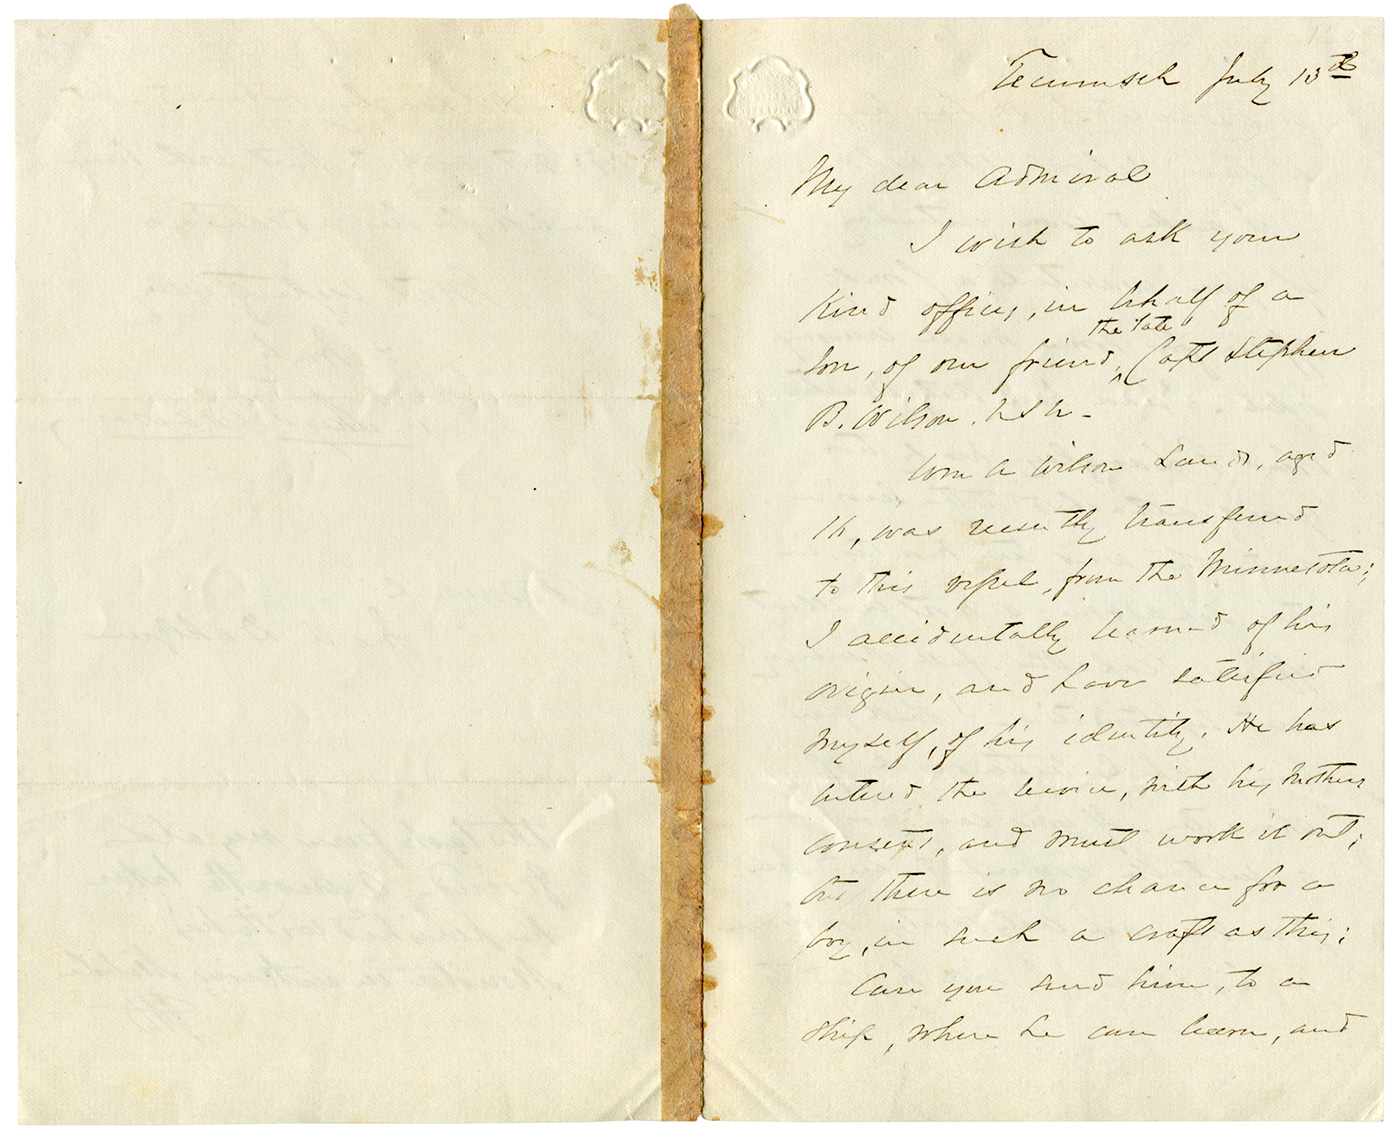 Tecumseh July 13th
My dear Admiral
I wish to ask your
Kind offices, in behalf of a
son, of our friend, the late Capt Stephen
B. Wilson. USN-
Wm A Wilson Lands, aged
16, was recently transferred
to this vessel, from the Minnesota;
I accidentally learned of his
origin, and have satisfied
myself, of his identity. He has
entered the service, with his Mothers
consent, and must work it out;
but there is no chance for a
boy, in such a craft as this;
Can you send him, to a
ship, where he can learn, and